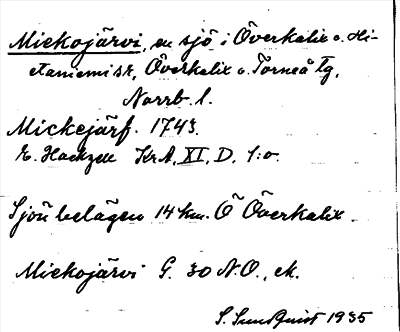 Miekojärvi, en sjö i Överkalix o. Hi-
etaniemi sk, Överkalix o. Torneå tg,
Norrb. l.
Mickejärf. 1743.
E. Hackzell KrA, XI, D, 1:o.
Sjön belägen 14 km. Ö Överkalix.
Miekojärvi G. 30 N.O., ek.
S. Sundquist 1935